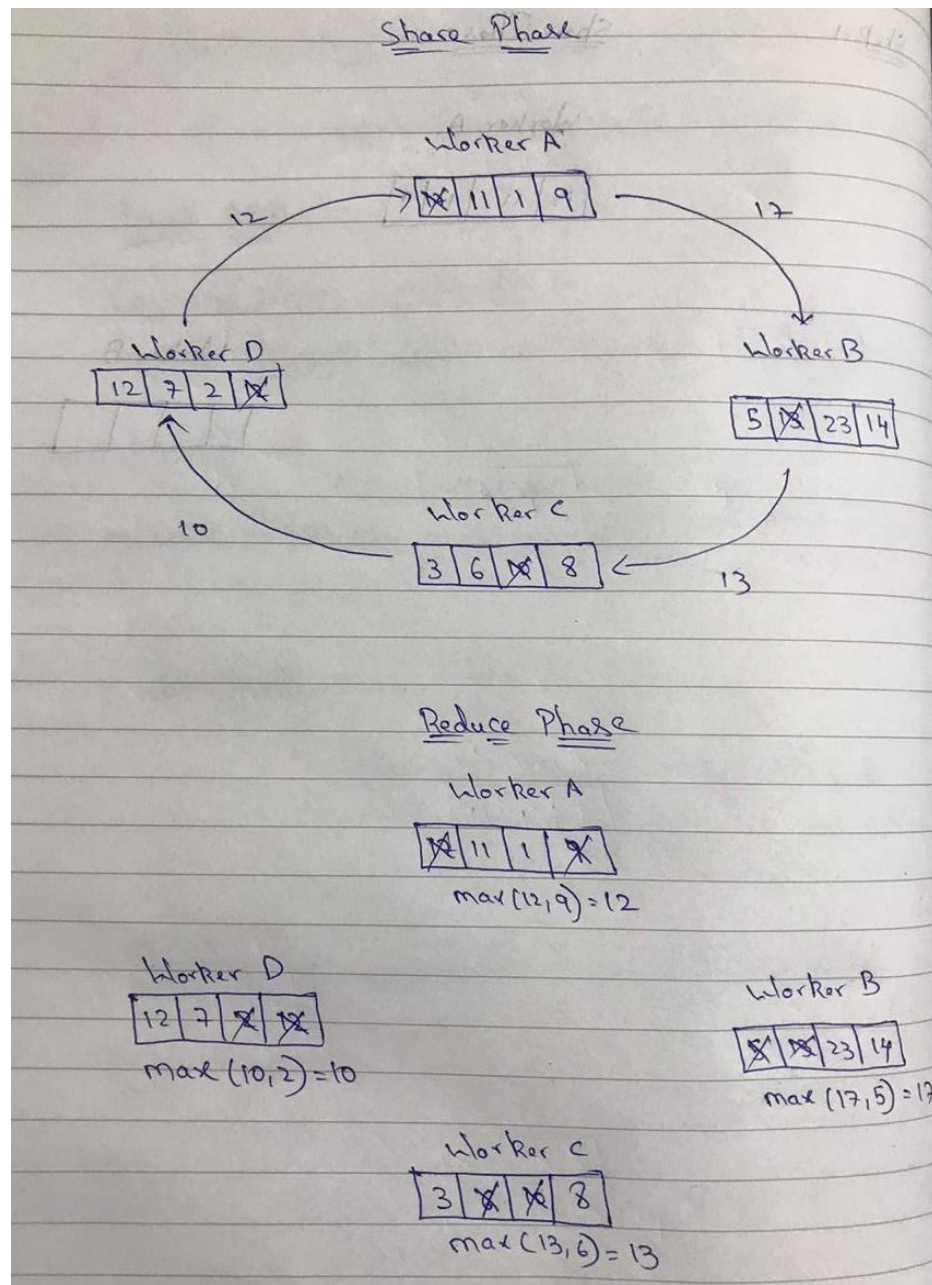 Share Phase
Worker A
11 1 9
12
17
Worker D
12 7 2
Worker B
5 23 14
Worker C
3 6 8
10
13
Reduce Phase
Worker A
11 1
max(12,9)=12
Worker D
12 7
max(10,2)=10
Worker B
23 14
max(17,5)=17
Worker C
3 8
max(13,6)=13